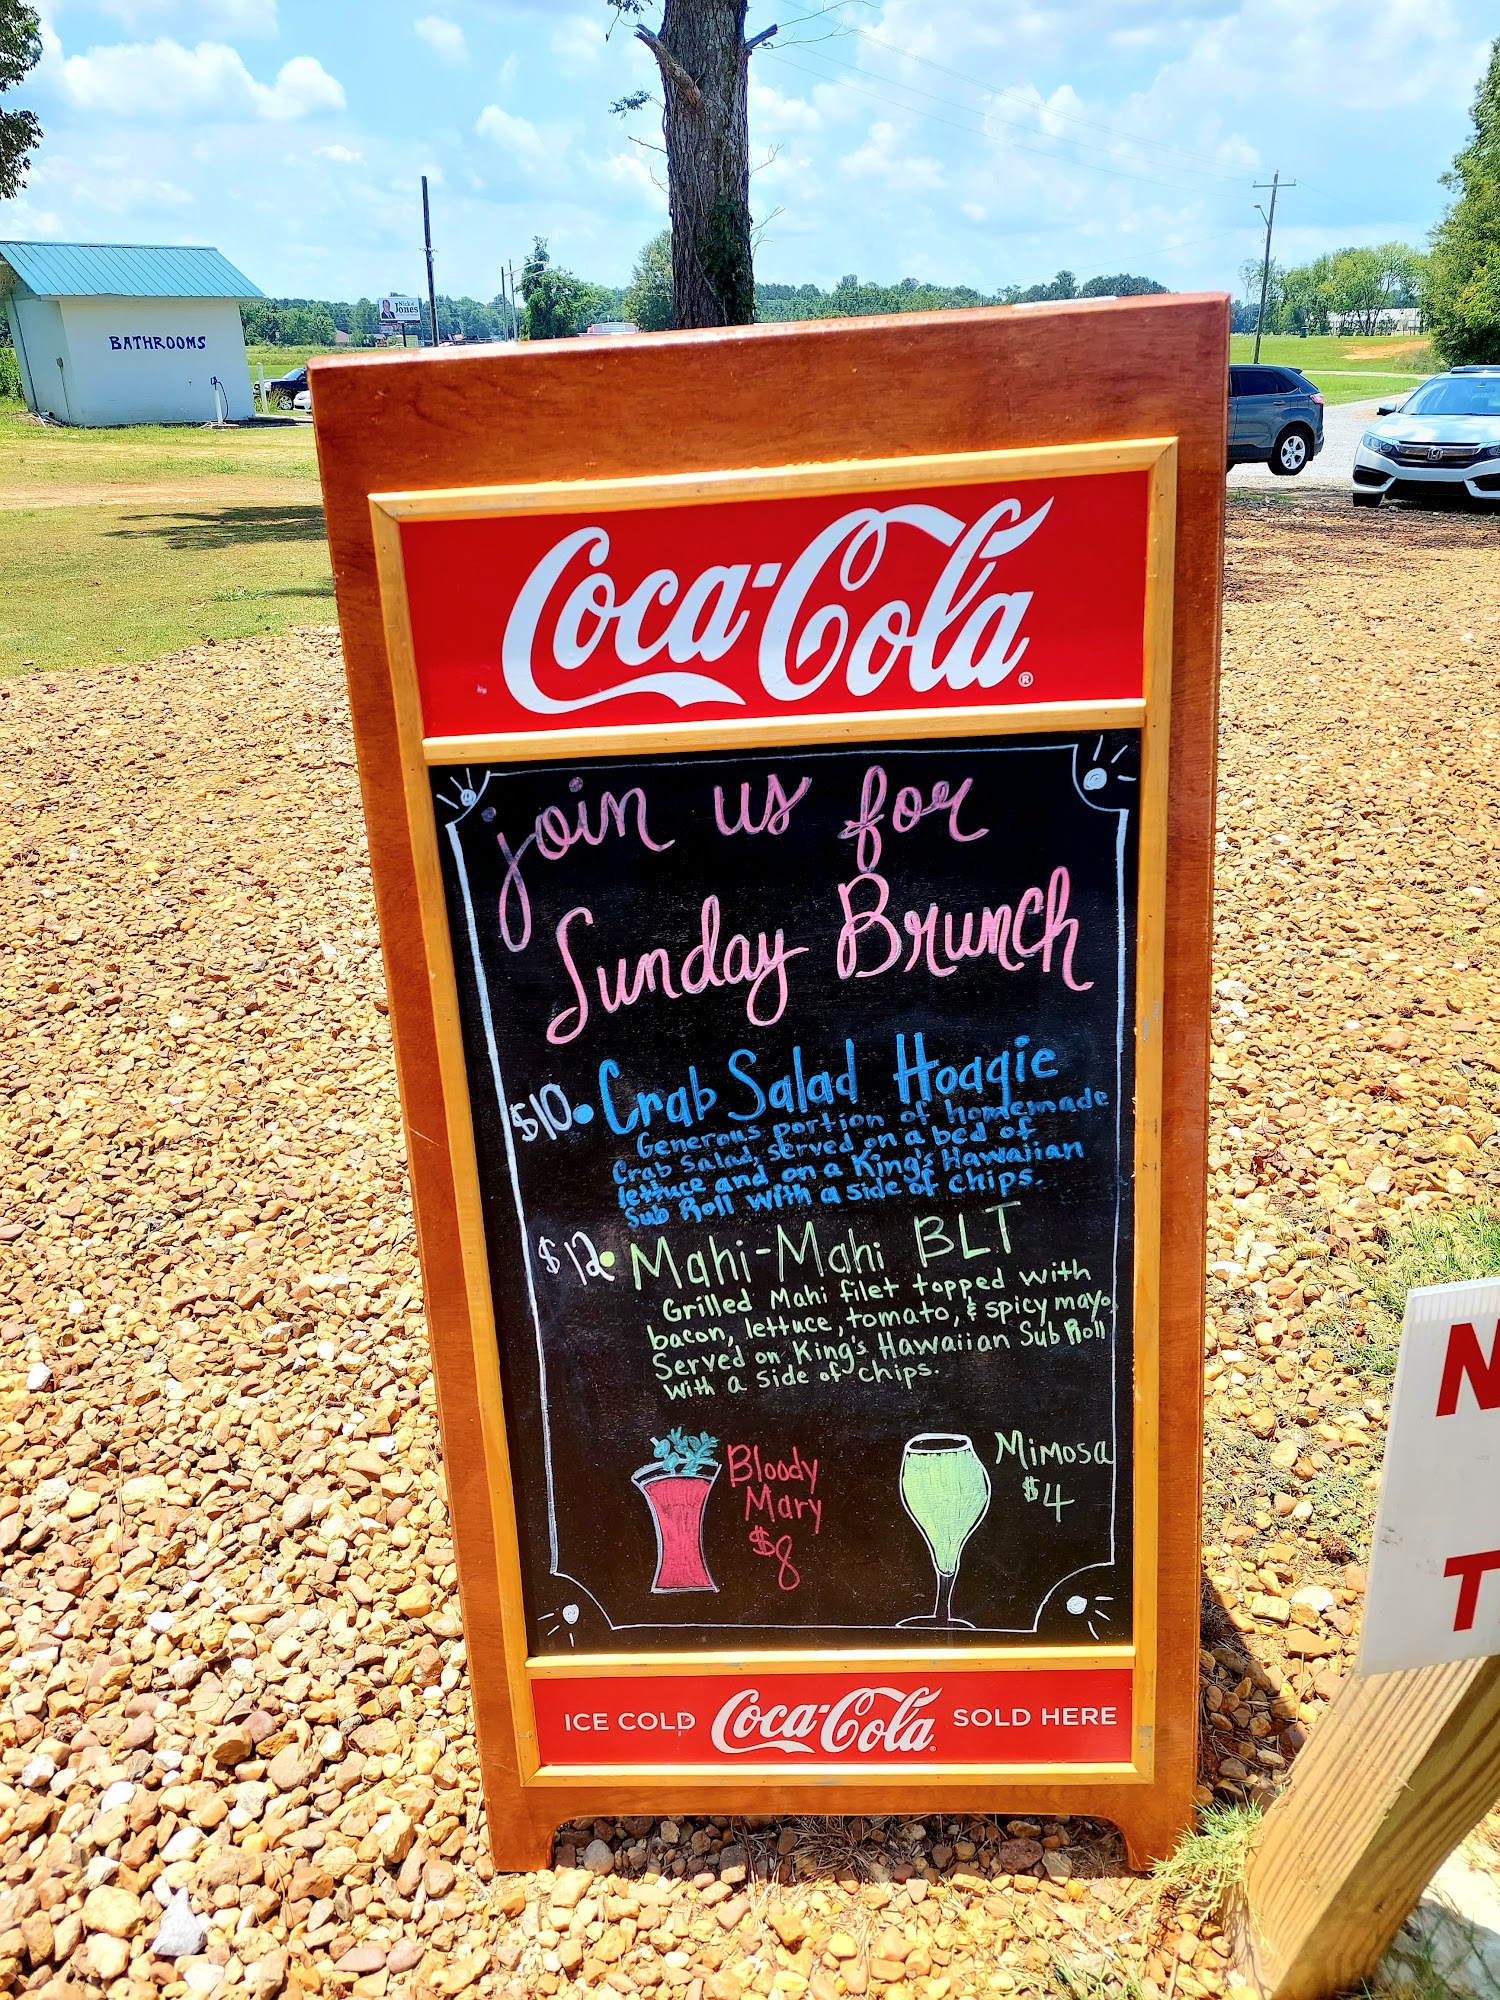 BATHROOMS
Jones
Coca-Cola®
join us for
Sunday Brunch
$10• Crab Salad Hoagie
Generous portion of homemade
Crab Salad, served on a bed of
lettuce and on a King's Hawaiian
Sub Roll with a side of chips.
$12• Mahi-Mahi BLT
Grilled Mahi filet topped with
bacon, lettuce, tomato, & spicy mayo,
Served on King's Hawaiian Sub Roll
with a side of chips.
Bloody
Mary
$8
Mimosa
$4
ICE COLD Coca-Cola SOLD HERE
N
T